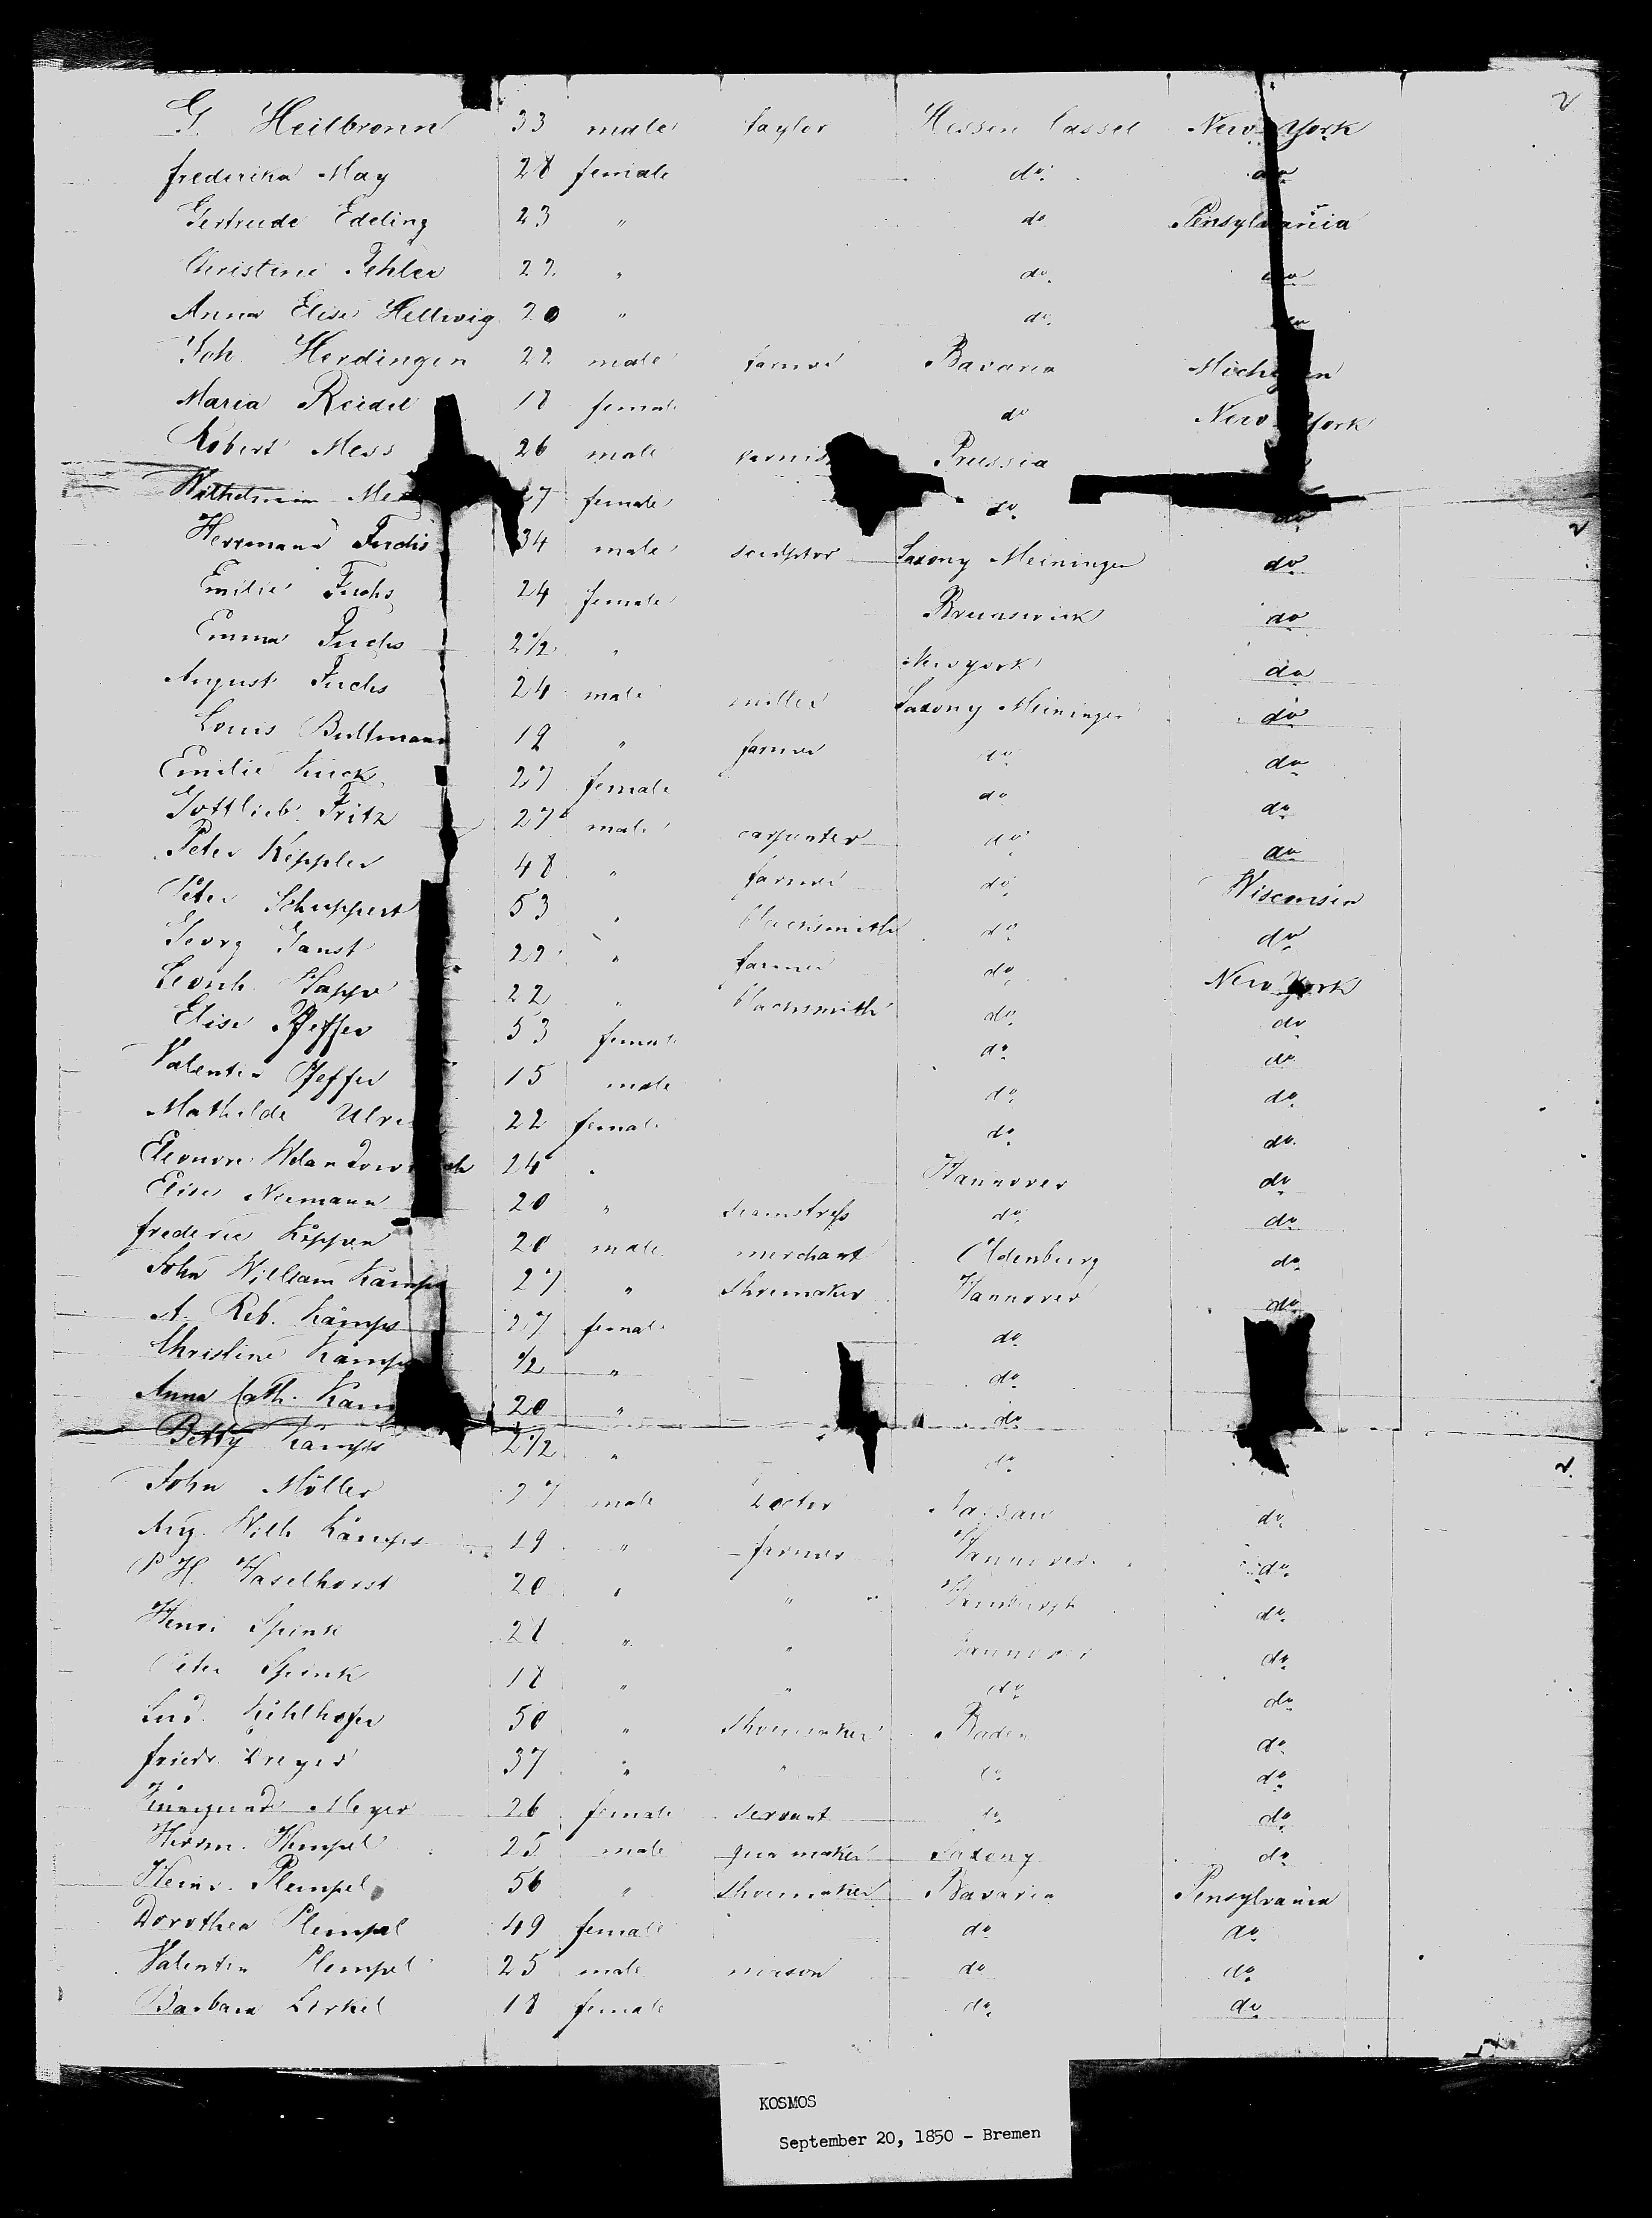 2
G. Heilbronn 33 male taylor Hessen Cassel New York
frederika May 28 female do. do
Gertrude Edeling 23 " do Pensylvania
Christine Fehler 22 " do. do
Anna Elise Hellwig 20 " do. do
Joh. Herdingen 22 male farmer Bavaria Michigan
Maria Riedel 18 female do New York
Robert Mess 26 male Prussia
Wilhelmin 27 female do. do
2
Herrmann Fuchs 34 male sculptor Saxony Meiningen do
Emilie Fuchs 24 female Brunswick do
Emma Fuchs 2 1/2 " Newyork do
August Fuchs 24 male miller Saxony Meiningen do
Louis Bultmann 19 " farmer do do
Emilie Kuck 27 female do do
Gottlieb Fritz 27 male carpenter do do
Peter Keppler 48 " farmer do. Wisconsin
Peter Schuppert 53 " blacksmith do do
Georg Ganst 22 " farmer do. New York
Leonh. Happ 22 " blacksmith do. do
Elise Pfeffer 53 female do. do
Valentin Pfeffer 15 male do. do.
Mathilde 22 female do. do.
Eleonore 24 " Hannover do
Elise Niemann 20 " seamstress do. do
frederic Köppen 20 male merchant Oldenburg do
John William Kämps 27 " Shoemaker Hannover do
A. Reb. Kämps 27 female do.
Christine Kämps 1/2 " do.
Anna Cath. 20 " do
Betty Kämps 2 1/2 " do.
2.
John Möller 27 male Doctor Nassau do.
Aug. Wilh Kämps 19 " farmer Hannover do.
P H. Haselhorst 20 " " Hamburgh do.
Henri Spink 28 " " Hannover do.
Peter Spink 18 " " do. do
Lud. Kühlhofer 50 " Shoemaker Baden do.
friedr. Dreyer 37 " " do. do.
Kunegunde Meyer 26 female servant do. do
Herrm. Hempel 25 male gun maker Saxony do.
Heinr. Plempel 56 " Shoemaker Bavaria Pensylvania
Dorothea Plempel 49 female do do.
Valentin Plempel 25 male mason do do.
Barbara Zirkel 18 female do. do.
KOSMOS
September 20, 1850 - Bremen